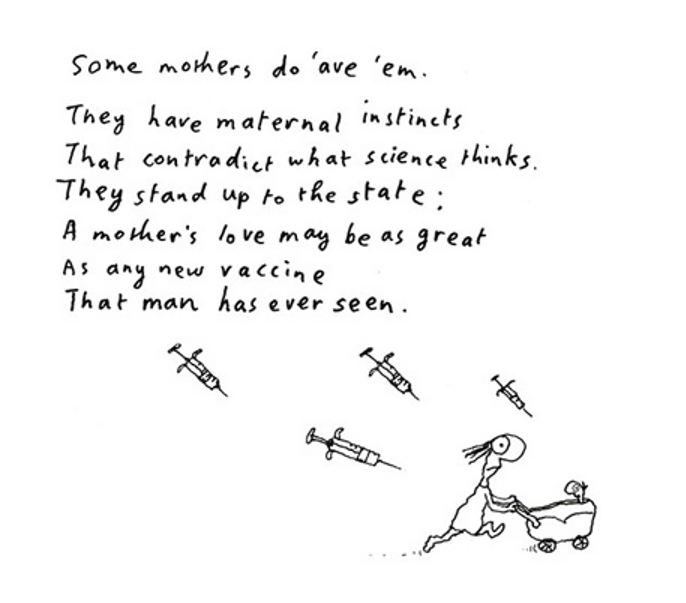 Some mothers do 'ave 'em.
They have maternal instincts
That contradict what science thinks.
They stand up to the state;
A mother's love may be as great
As any new vaccine
That man has ever seen.